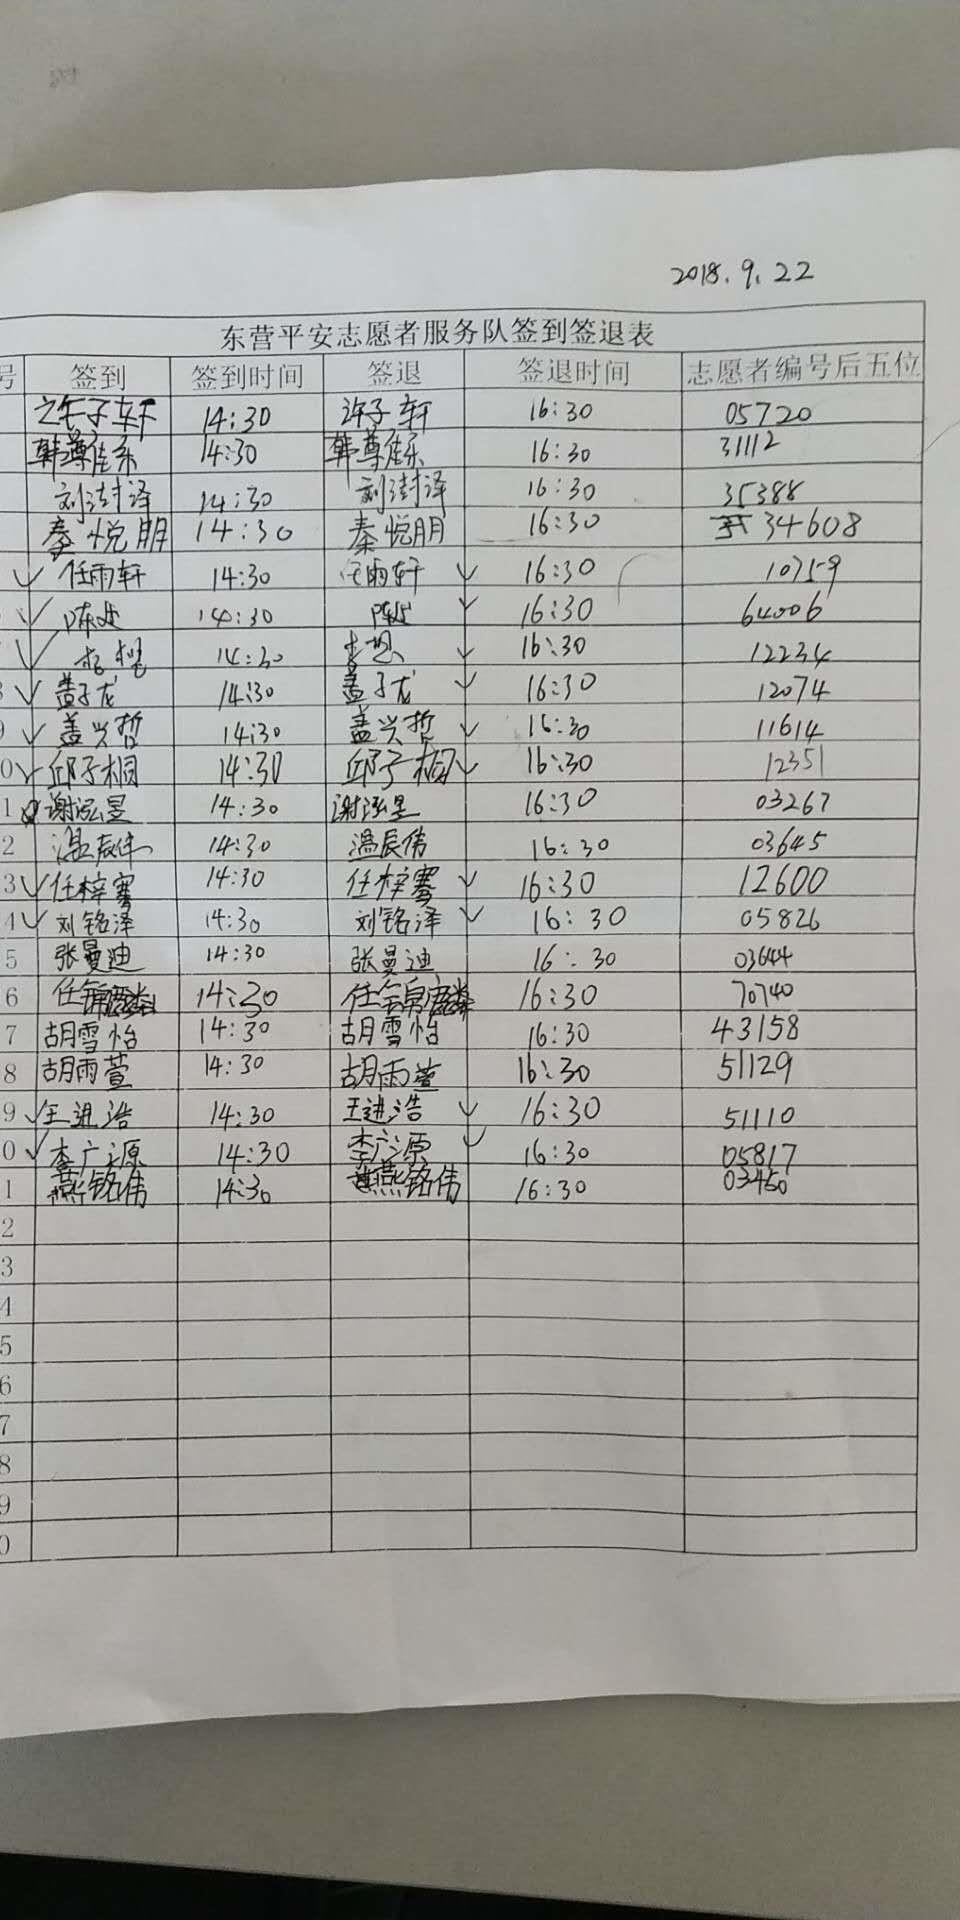 2018.9.22
东营平安志愿者服务队签到签退表
号 签到 签到时间 签退 签退时间 志愿者编号后五位
许子轩 14:30 许子轩 16:30 05720
韩尊佳乐 14:30 韩尊佳乐 16:30 31112
刘澍泽 14:30 刘澍泽 16:30 35388
秦悦朋 14:30 秦悦朋 16:30 34608
任雨轩 14:30 任雨轩 16:30 10759
陈 14:30 陈 16:30 64006
李想 14:30 李想 16:30 12234
盖子龙 14:30 盖子龙 16:30 12074
9 盖兴哲 14:30 盖兴哲 16:30 11614
0 邱子桐 14:30 邱子桐 16:30 12351
1 谢泓昱 14:30 谢泓昱 16:30 03267
2 温辰伟 14:30 温辰伟 16:30 03645
3 任梓骞 14:30 任梓骞 16:30 12600
4 刘铭泽 14:30 刘铭泽 16:30 05826
5 张曼迪 14:30 张曼迪 16:30 03644
6 任锦麟 14:30 任锦麟 16:30 70740
7 胡雪怡 14:30 胡雪怡 16:30 43158
8 胡雨萱 14:30 胡雨萱 16:30 51129
9 王进浩 14:30 王进浩 16:30 51110
0 李广源 14:30 李广源 16:30 05817
1 燕铭伟 14:30 燕铭伟 16:30 03460
2
3
4
5
6
7
8
9
0